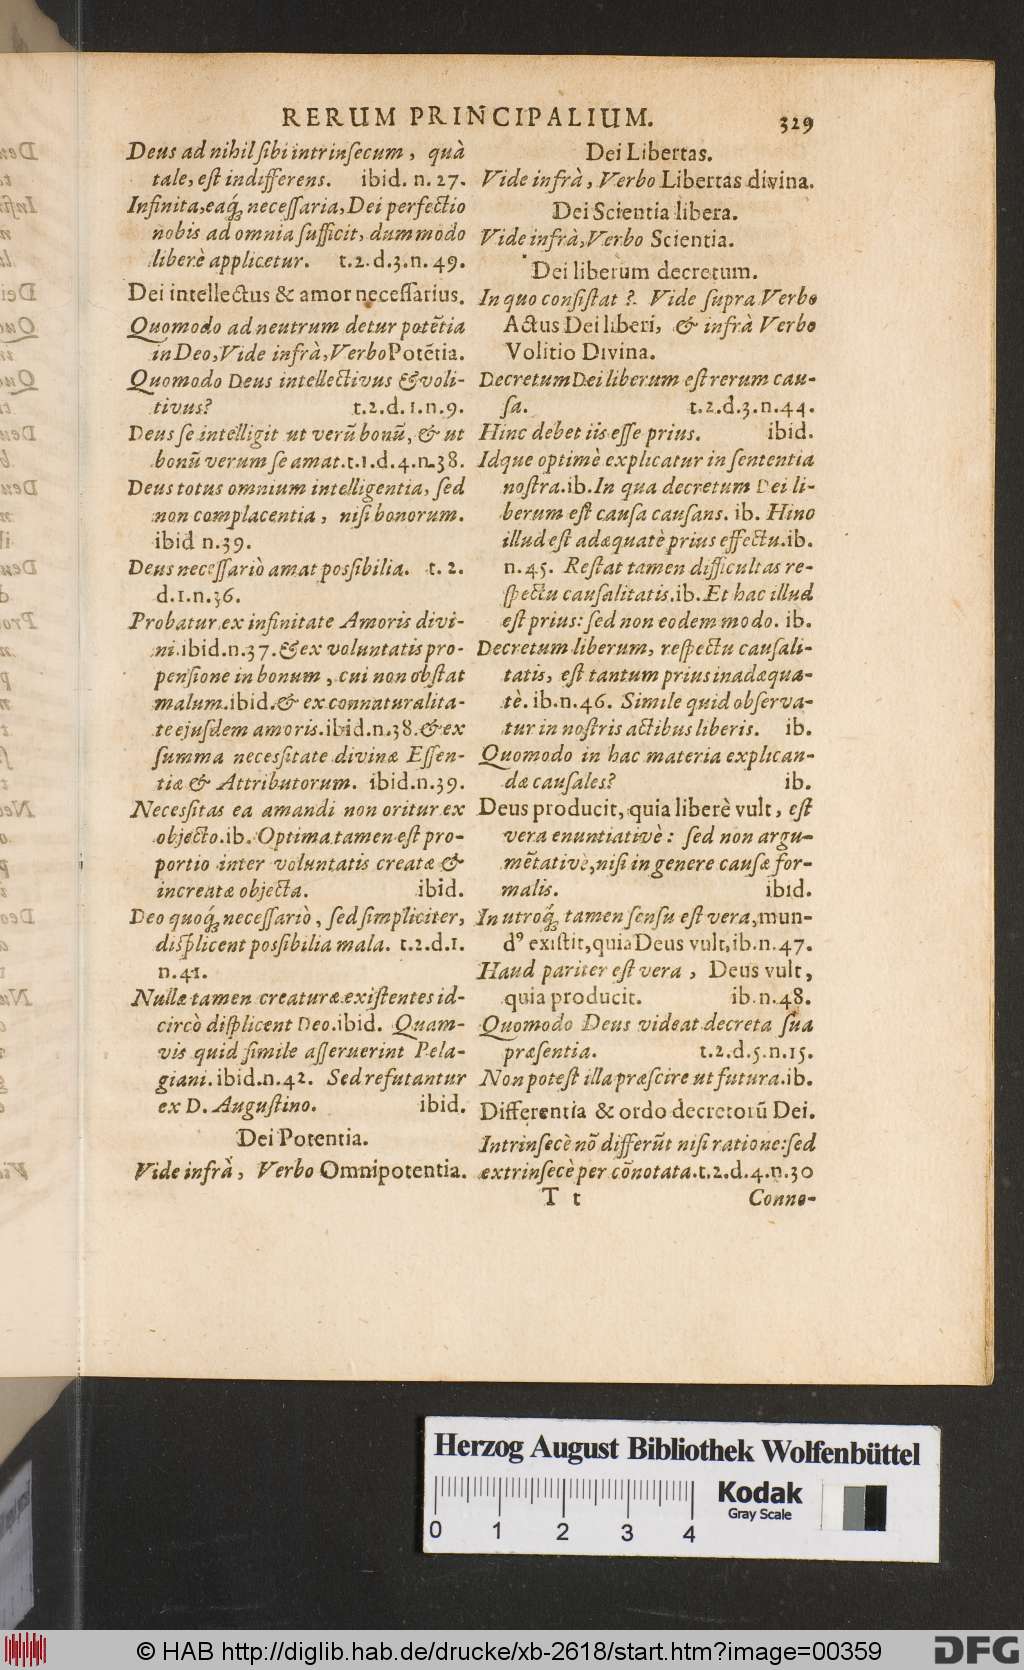 RERUM PRINCIPALIUM. 329
Deus ad nihil sibi intrinsecum, quà
tale, est indifferens. ibid. n. 27.
Infinita, eaq́; necessaria, Dei perfectio
nobis ad omnia sufficit, dummodo
liberè applicetur. t. 2. d. 3. n. 49.
Dei intellectus & amor necessarius.
Quomodo ad neutrum detur potẽtia
in Deo, Vide infrà, Verbo Potẽtia.
Quomodo Deus intellectivus & voli-
tivus? t. 2. d. 1. n. 9.
Deus se intelligit ut verũ bonũ, & ut
bonũ verum se amat. t. 1. d. 4. n. 38.
Deus totus omnium intelligentia, sed
non complacentia, nisi bonorum.
ibid n. 39.
Deus necessariò amat possibilia. t. 2.
d. 1. n. 36.
Probatur ex infinitate Amoris divi-
ni. ibid. n. 37. & ex voluntatis pro-
pensione in bonum, cui non obstat
malum. ibid. & ex connaturalita-
te ejusdem amoris. ibid. n. 38. & ex
summa necessitate divinæ Essen-
tiæ & Attributorum. ibid. n. 39.
Necessitas ea amandi non oritur ex
objecto. ib. Optima tamen est pro-
portio inter voluntatis creatæ &
increatæ objecta. ibid.
Deo quoq́; necessariò, sed simpliciter,
displicent possibilia mala. t. 2. d. 1.
n. 41.
Nullæ tamen creaturæ existentes id-
circò displicent Deo. ibid. Quam-
vis quid simile asseruerint Pela-
giani. ibid. n. 42. Sed refutantur
ex D. Augustino. ibid.
Dei Potentia.
Vide infrà, Verbo Omnipotentia.
Dei Libertas.
Vide infrà, Verbo Libertas divina.
Dei Scientia libera.
Vide infrà, Verbo Scientia.
Dei liberum decretum.
In quo consistat? Vide supra Verbo
Actus Dei liberi, & infrà Verbo
Volitio Divina.
Decretum Dei liberum est rerum cau-
sa. t. 2. d. 3. n. 44.
Hinc debet iis esse prius. ibid.
Idque optimè explicatur in sententia
nostra. ib. In qua decretum Dei li-
berum est causa causans. ib. Hinc
illud est adæquatè prius effectu. ib.
n. 45. Restat tamen difficultas re-
spectu causalitatis. ib. Et hac illud
est prius: sed non eodem modo. ib.
Decretum liberum, respectu causali-
tatis, est tantum prius inadæqua-
tè. ib. n. 46. Simile quid observa-
tur in nostris actibus liberis. ib.
Quomodo in hac materia explican-
dæ causales? ib.
Deus producit, quia liberè vult, est
vera enuntiativè: sed non argu-
mẽtativè, nisi in genere causæ for-
malis. ibid.
In utroq́; tamen sensu est vera, mun-
dꝰ existit, quia Deus vult, ib. n. 47.
Haud pariter est vera, Deus vult,
quia producit. ib. n. 48.
Quomodo Deus videat decreta sua
præsentia. t. 2. d. 5. n. 15.
Non potest illa præscire ut futura. ib.
Differentia & ordo decretorũ Dei.
Intrinsecè nõ differũt nisi ratione: sed
extrinsecè per cõnotata. t. 2. d. 4. n. 30
T t Conne-
Herzog August Bibliothek Wolfenbüttel
0 1 2 3 4
Kodak
Gray Scale
© HAB http://diglib.hab.de/drucke/xb-2618/start.htm?image=00359
DFG